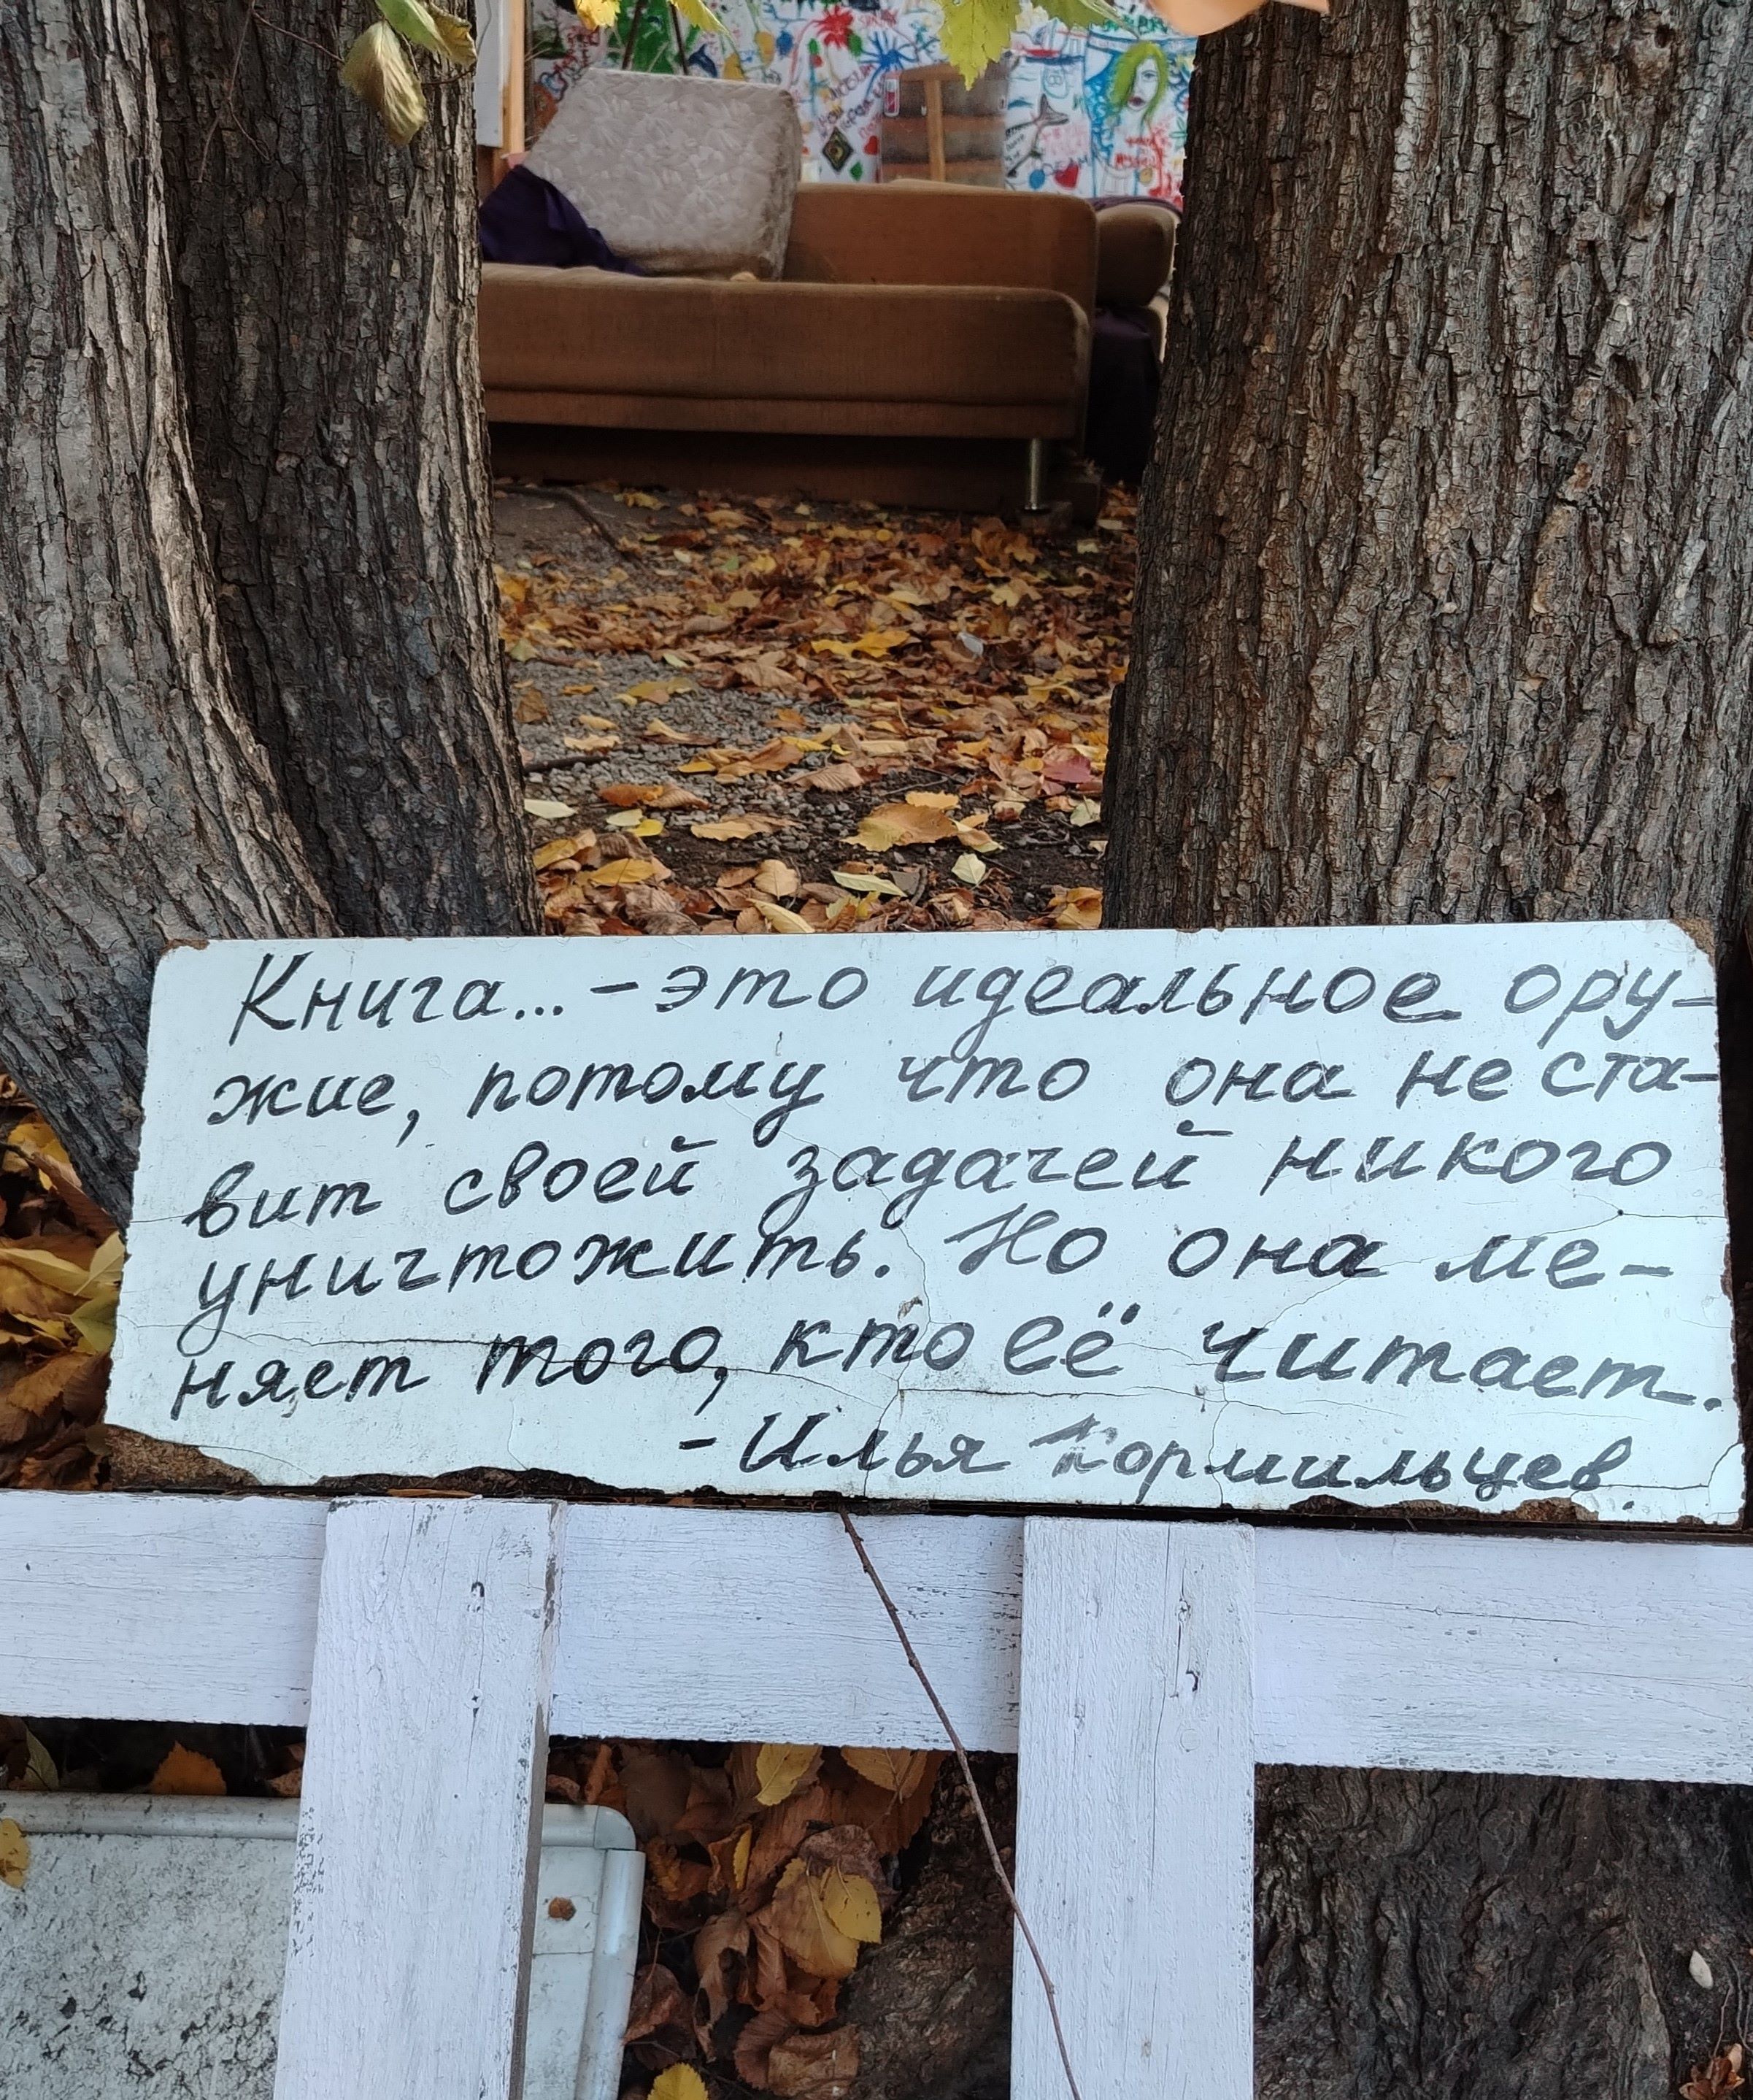 Книга... - это идеальное ору-
жие, потому что она не ста-
вит своей задачей никого
уничтожить. Но она ме-
няет того, кто её читает.
- Илья Кормильцев.